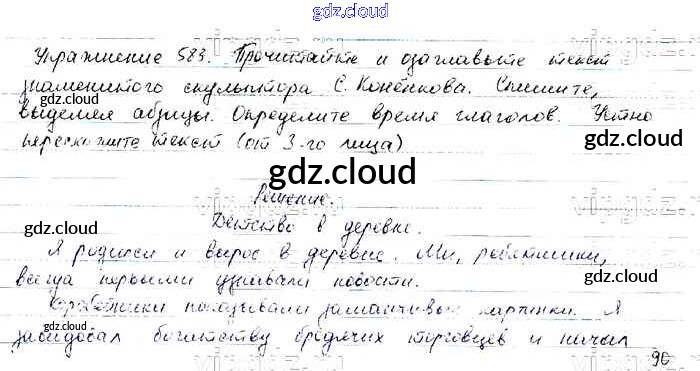 gdz.cloud
Упражнение 583. Прочитайте и озаглавьте текст
знаменитого скульптора С. Конёнкова. Спишите,
gdz.cloud
выделяя абзацы. Определите время глаголов. Устно
перескажите текст (от 3-го лица)
gdz.cloud
gdz.cloud
Решение.
gdz.cloud
Детство в деревне.
Я родился и вырос в деревне. Ми, ребятишки,
всегда первыми узнавали новости.
gdz.cloud
Коробейники показывали заманчивые картинки. Я
gdz.cloud
завидовал богатству бродячих торговцев и
gdz.cloud
90